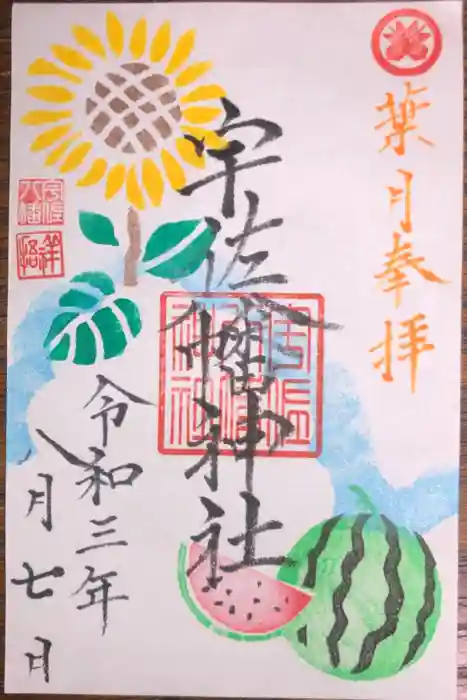 葉月奉拝
宇佐八幡神社
令和三年
八月七日
宇佐
八幡